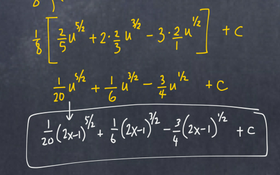 1/8 [ 2/5 u^5/2 + 2 · 2/3 u^3/2 - 3 · 2/1 u^1/2 ] + C
1/20 u^5/2 + 1/6 u^3/2 - 3/4 u^1/2 + C
1/20 (2x-1)^5/2 + 1/6 (2x-1)^3/2 - 3/4 (2x-1)^1/2 + C